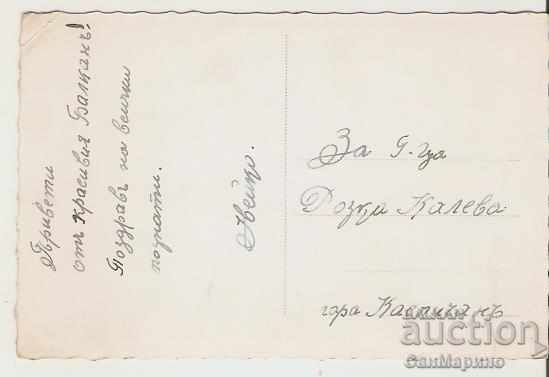 Привети
отъ красивия Балканъ!
Поздравъ на всички
познати.
За Г-ца
Калева
гара Каспичанъ
auction
СанМарино